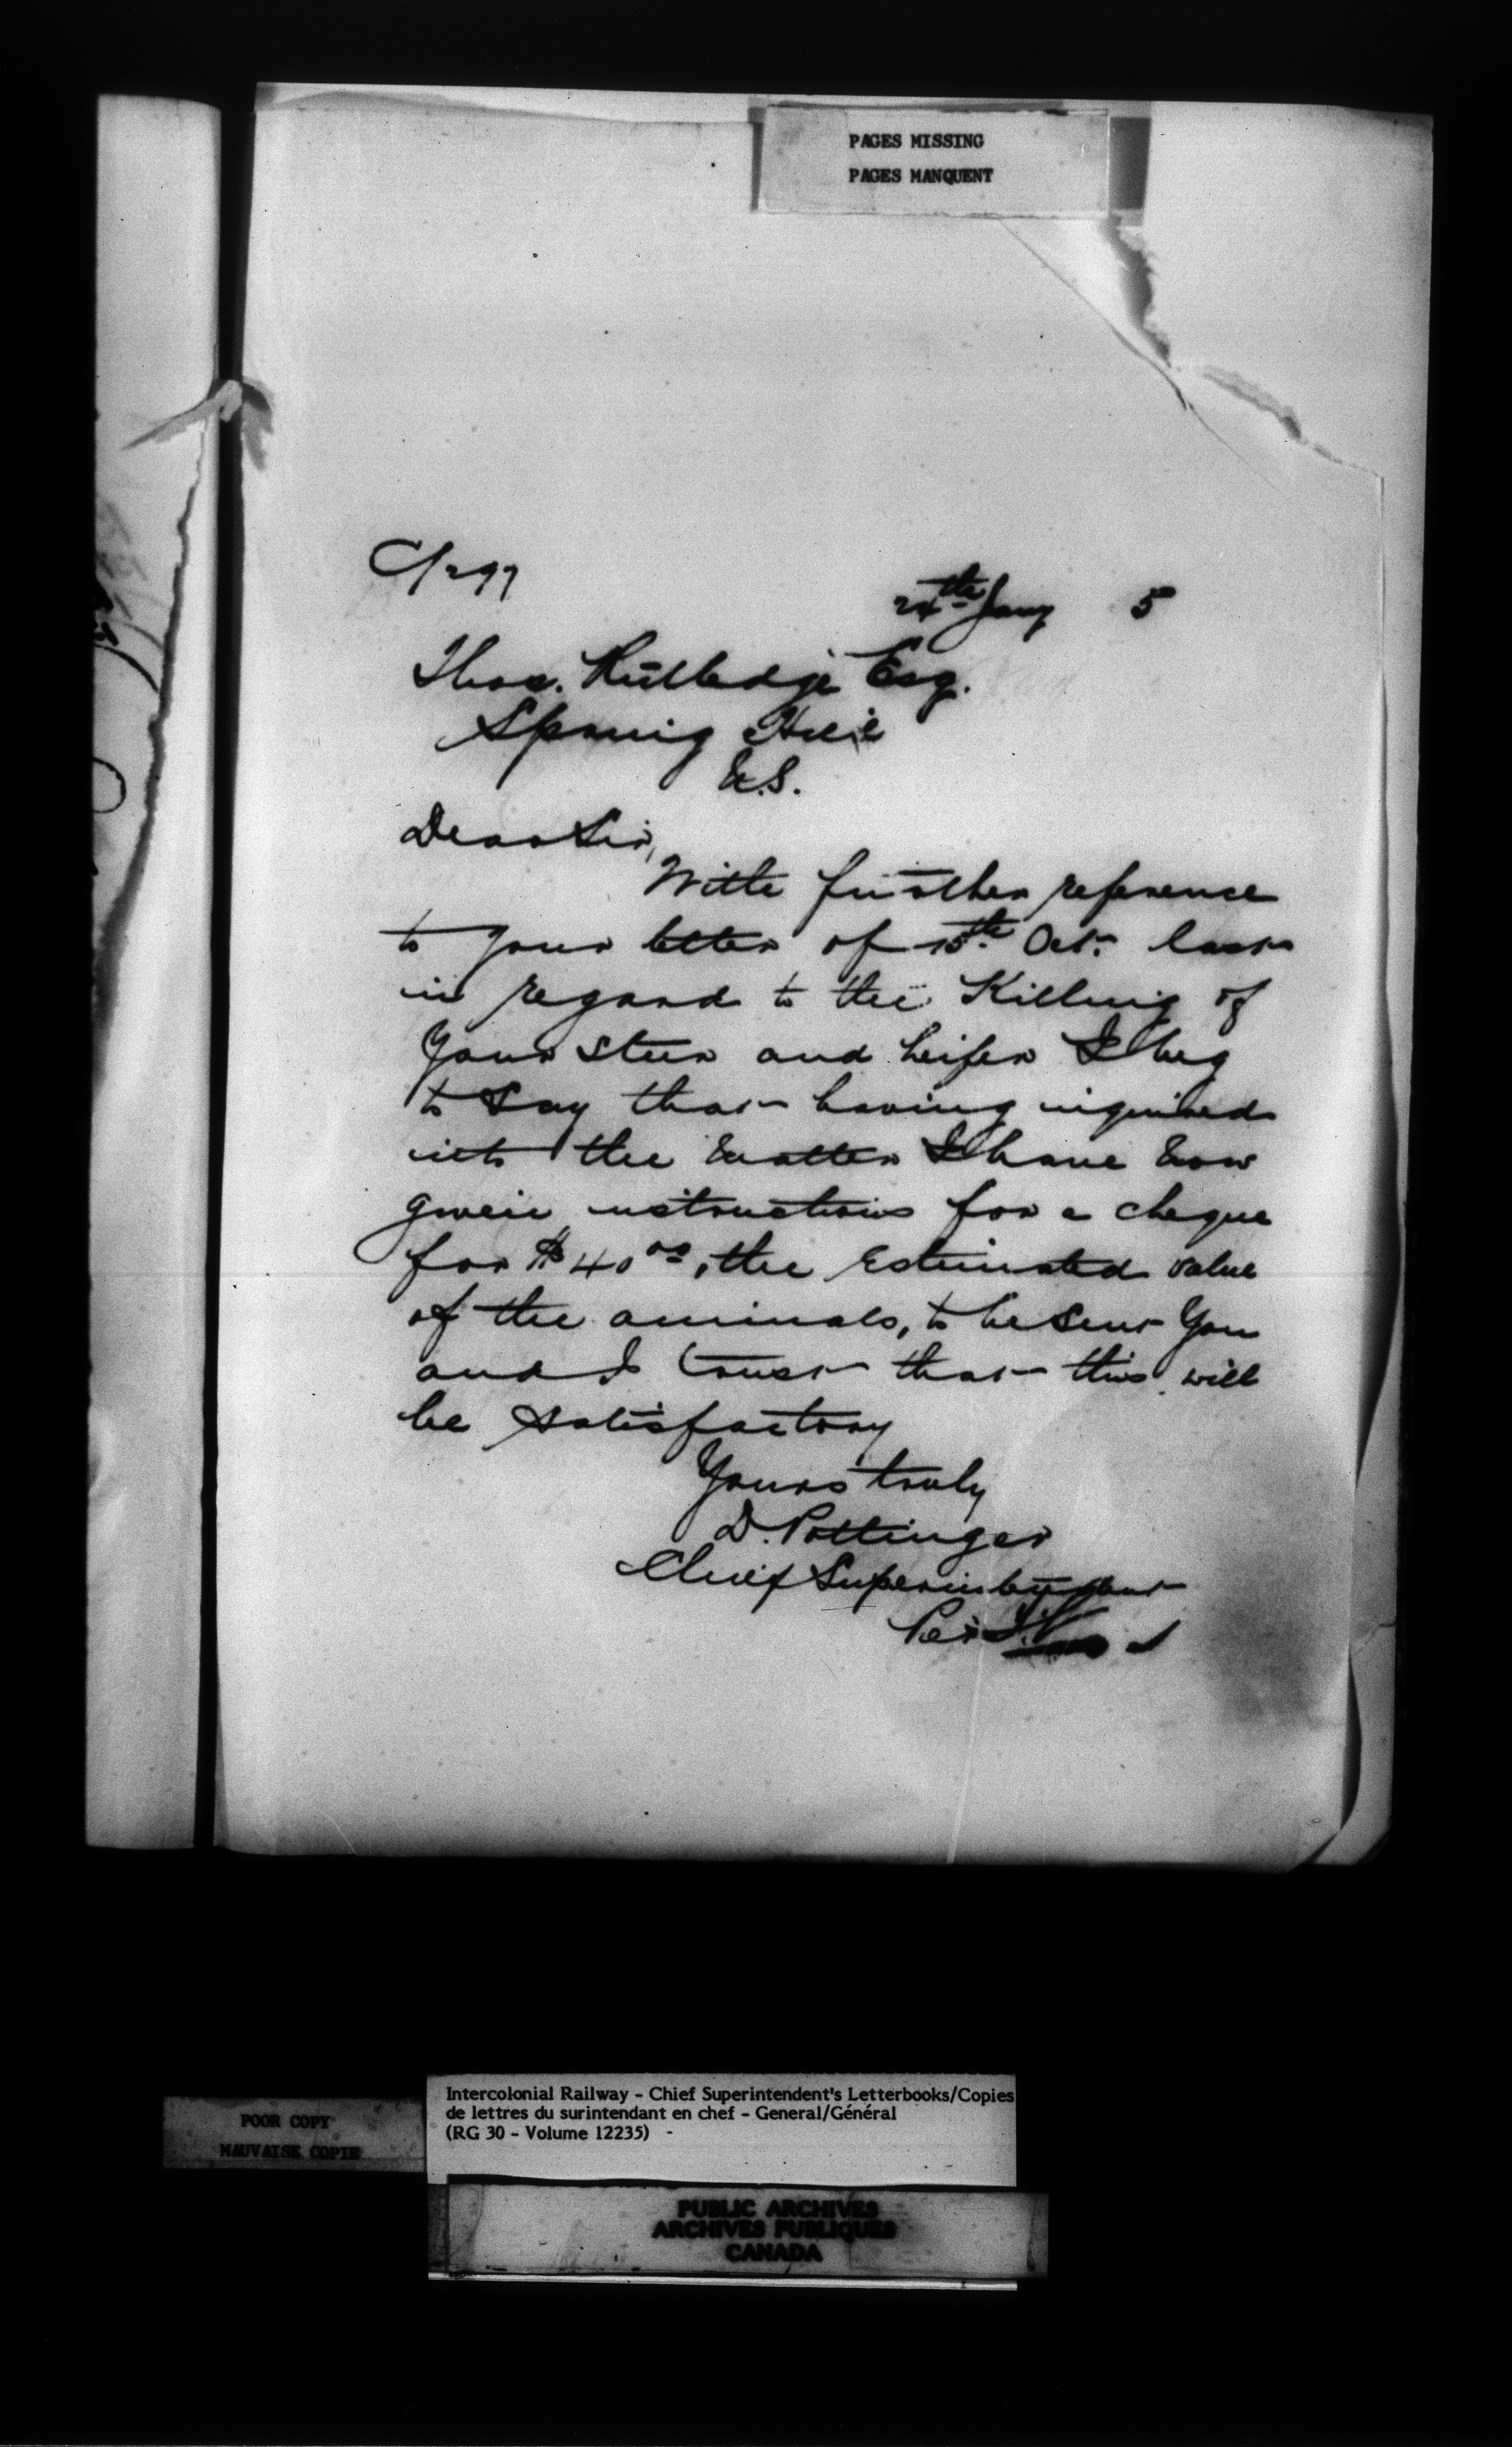 PAGES MISSING
PAGES MANQUENT
C/297
24th Jany 5
Thos. Rutledge Esq.
Spring Hill
N.S.
Dear Sir,
With further reference
to your letter of 15th Oct. last
in regard to the Killing of
your steer and heifer I beg
to say that having inquired
into the matter I have now
given instructions for a cheque
for $40.00, the estimated value
of the animals, to be sent you
and I trust that this will
be satisfactory
Yours truly
D. Pottinger
Chief Superintendent
Per
POOR COPY
MAUVAISE COPIE
Intercolonial Railway - Chief Superintendent's Letterbooks/Copies
de lettres du surintendant en chef - General/Général
(RG 30 - Volume 12235) -
PUBLIC ARCHIVES
ARCHIVES PUBLIQUES
CANADA